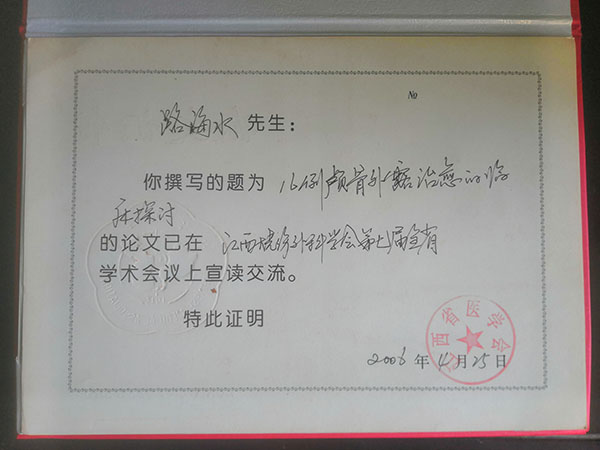 No
路海水 先生：
你撰写的题为 16例颅骨外露治愈的临
床探讨
的论文已在 江西烧伤外科学会第七届全省
学术会议上宣读交流。
特此证明
江西省医学会
2006 年 11 月 25 日